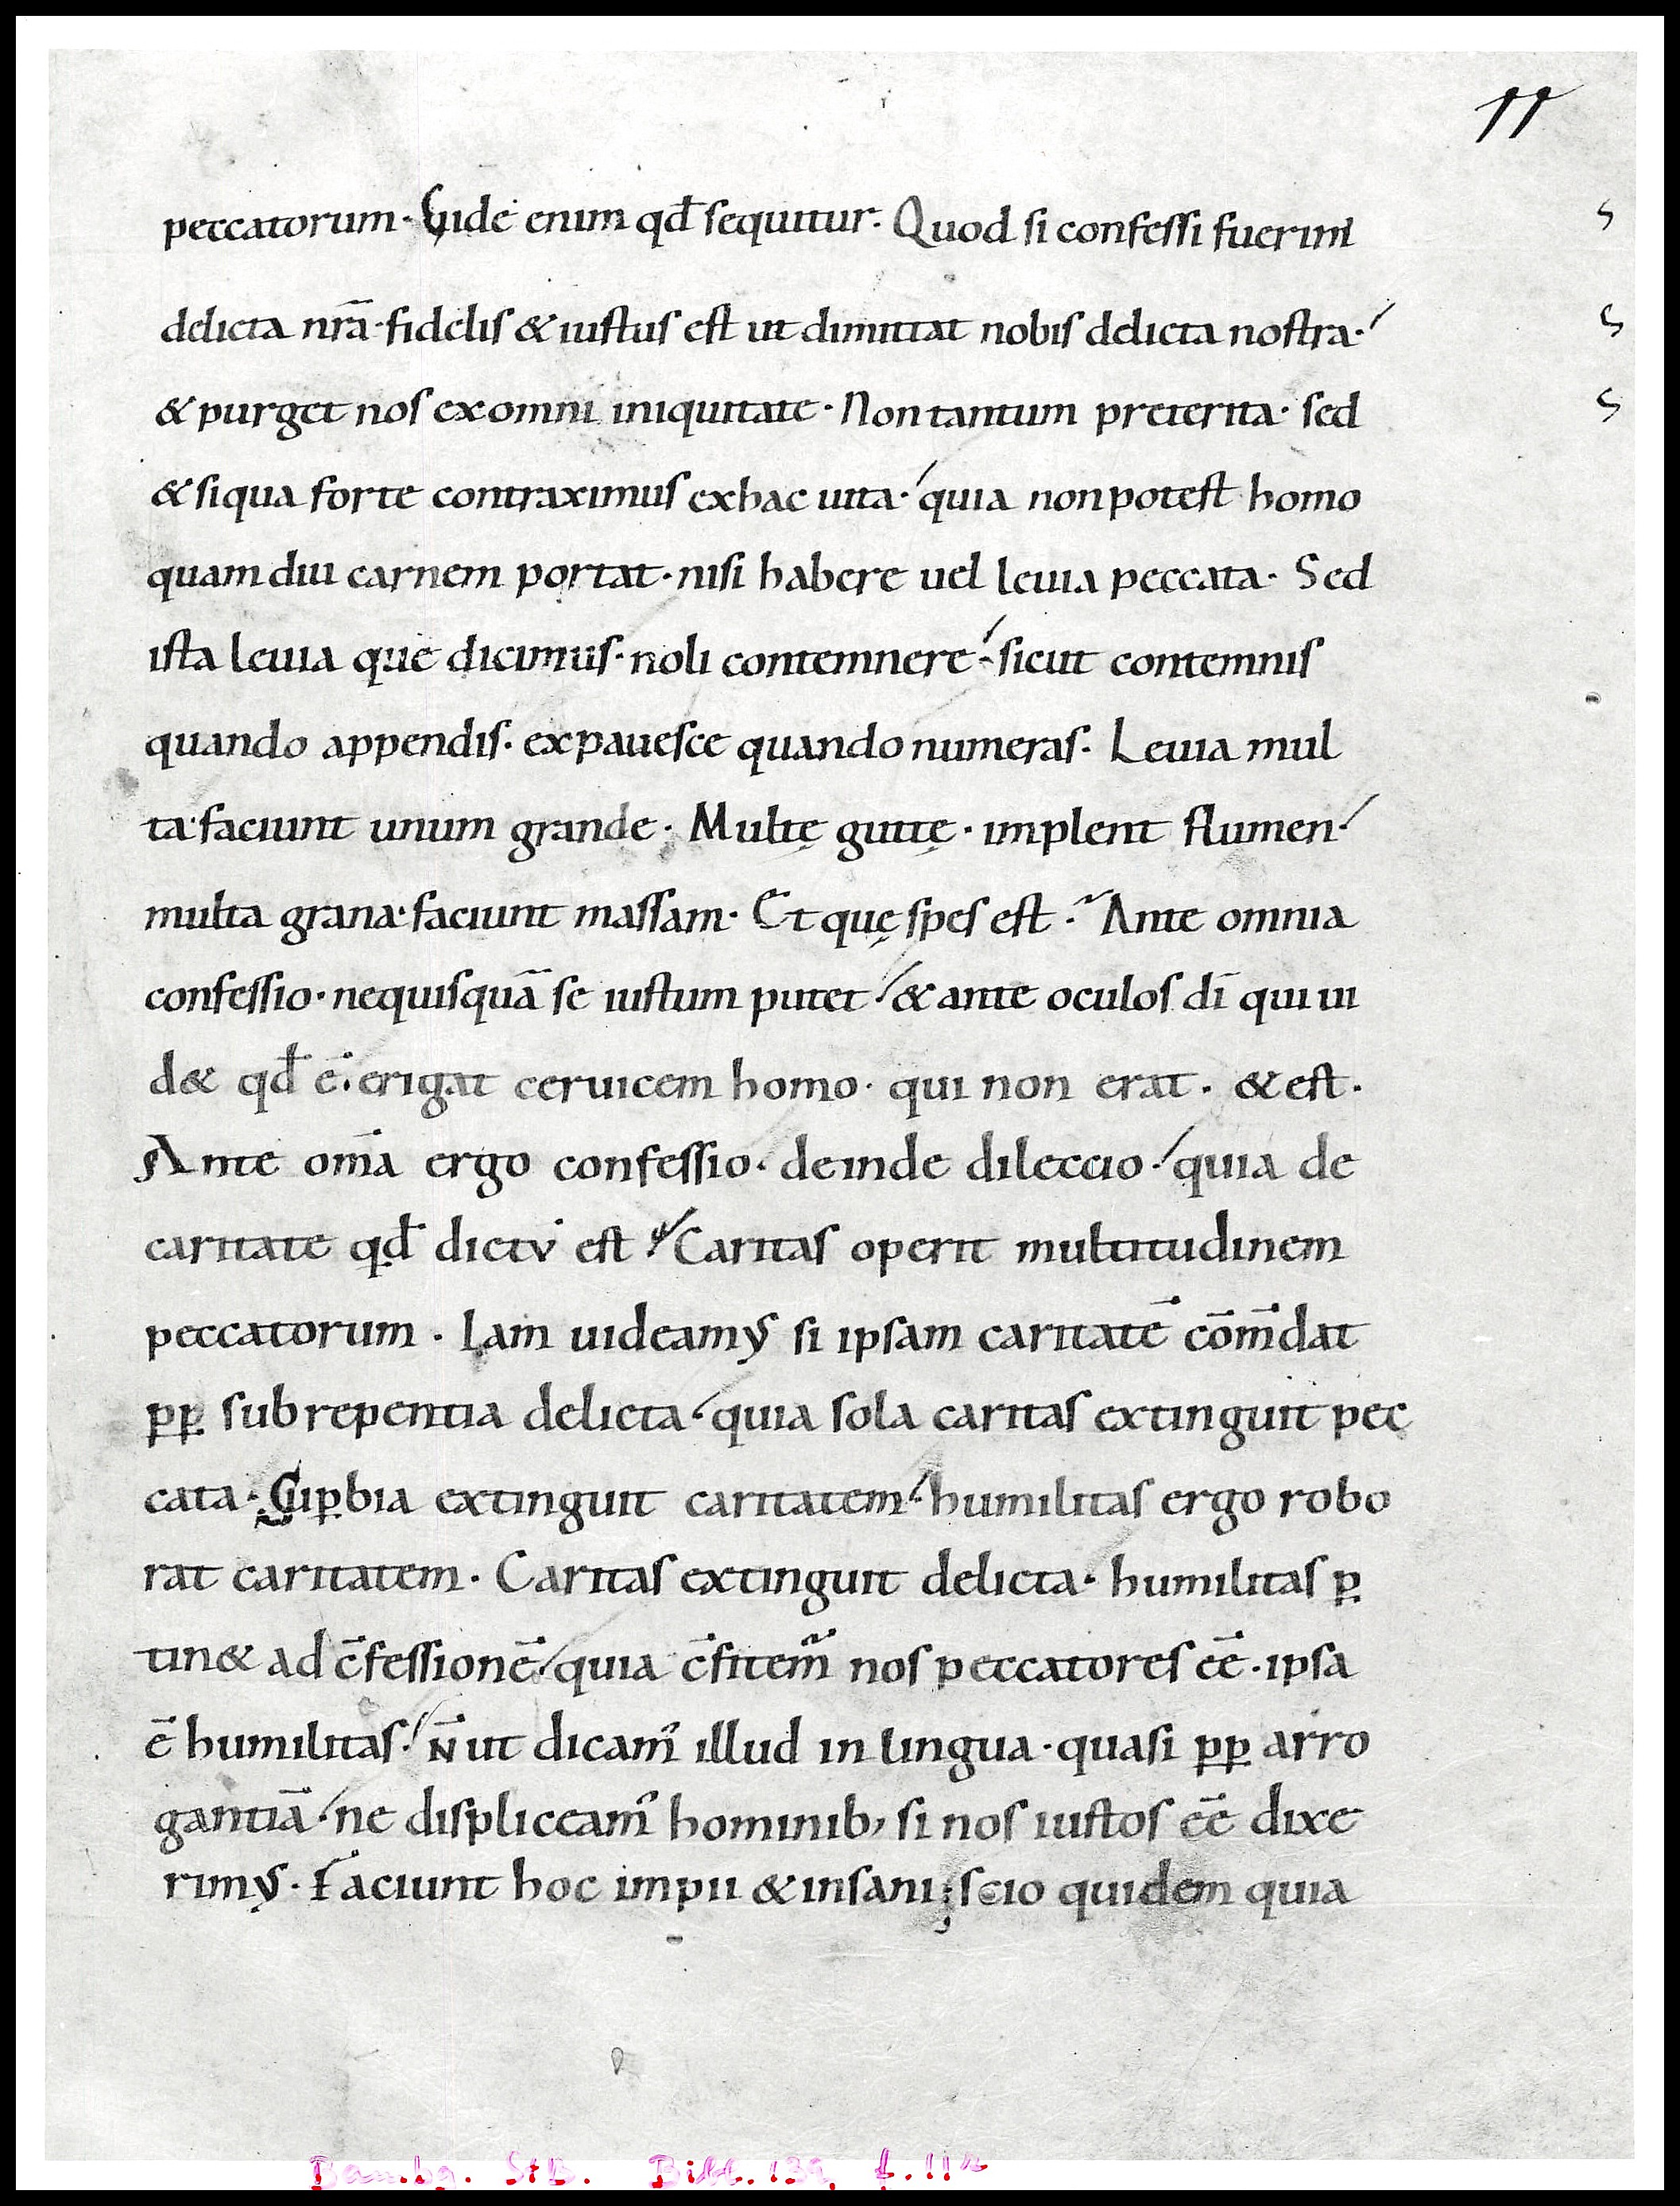 11
peccatorum· Uide enim qd̄ sequitur· Quod si confessi fuerim
delicta nr̄a· fidelis & iustus est ut dimittat nobis delicta nostra·
& purget nos ex omni iniquitate· Non tantum preterita· sed
& siqua forte contraximus ex hac uita· quia non potest homo
quam diu carnem portat· nisi habere uel leuia peccata· Sed
ista leuia que dicimus· noli contemnere· sicut contemnis
quando appendis· expauesce quando numeras· Leuia mul
ta· faciunt unum grande· Multę guttę· implent flumen·
multa grana· faciunt massam· Et quę spes est· Ante omnia
confessio· nequisquā se iustum putet· & ante oculos dī qui ui
d& qd̄ ē· erigat ceruicem homo· qui non erat· & est·
Ante om̄a ergo confessio· deinde dileccio· quia de
caritate qd̄ dictv̄ est· Caritas operit multitudinem
peccatorum· Iam uideamꝰ si ipsam caritatē cōm̄dat
ꝓꝑ subrepentia delicta· quia sola caritas extinguit pec
cata· Suꝑbia extinguit caritatem· humilitas ergo robo
rat caritatem· Caritas extinguit delicta· humilitas ꝑ
tin& ad c̄fessionē· quia c̄fitem̃ nos peccatores eē· ipsa
ē humilitas· N̄ ut dicam᷒ illud in lingua· quasi ꝓꝑ arro
gantiā· ne displiceam᷒ hominib; si nos iustos eē dixe
rimꝰ· Faciunt hoc impii & insani; scio quidem quia
Bambg. StB. Bibl. 139, f. 11r